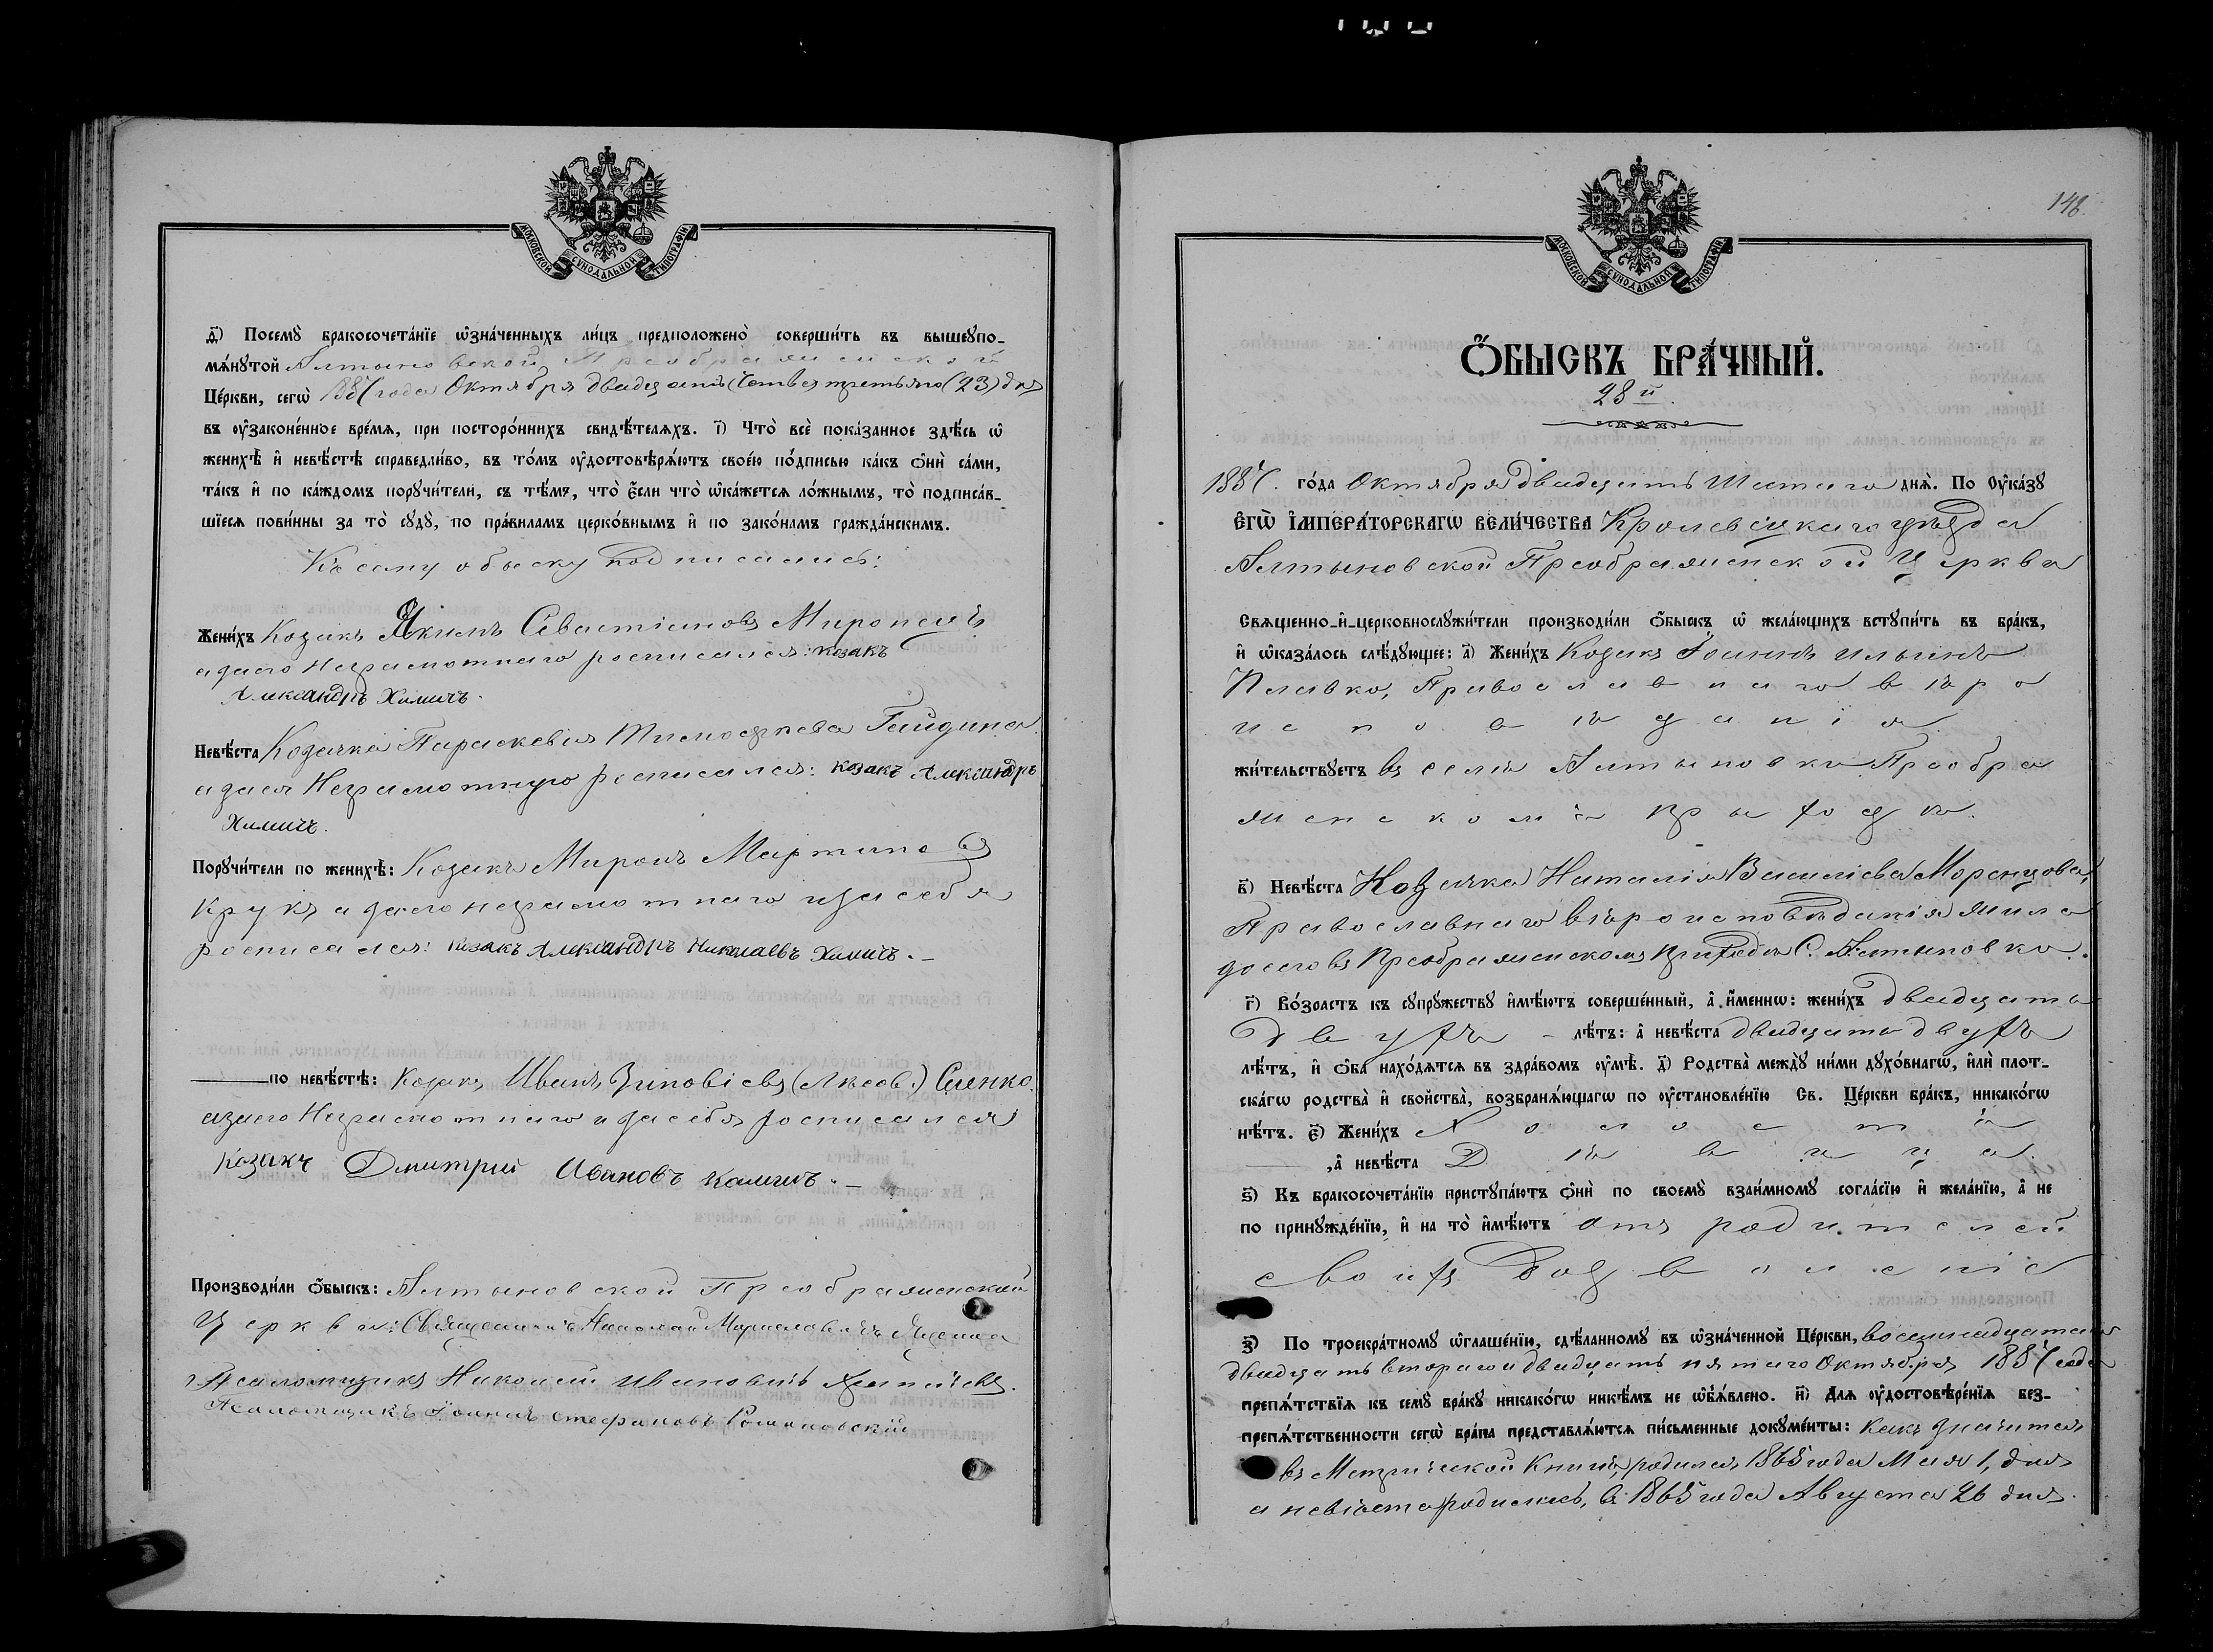 МОСКОВСКОЙ СѴНОДАЛЬНОЙ ТИПОГРАФІИ
д҃) Посемꙋ̀ бракосочета́нїе ѡ҆зна́ченныхъ ли́цъ предположено̀ соверши́ть въ вышеꙋпо-
мѧ́нꙋтой Алтыновской Преображенской
Це́ркви, сегѡ̀ 1887 года Октября двадцать третьяго (23) дня
въ ᲂу҆законе́нное вре́мѧ, при посторо́ннихъ свидѣ́телѧхъ. і҃) Что̀ всѐ пока́занное здѣ́сь ѡ҆
женихѣ̀ и҆ невѣ́стѣ справедли́во, въ то́мъ ᲂу҆достовѣрѧ́ютъ свое́ю по́дписью ка́къ ѻ҆нѝ са́ми,
та́къ и҆ по ка́ждомъ порꙋчи́тели, съ тѣ́мъ, что̀ є҆́сли что̀ ѡ҆ка́жетсѧ ло́жнымъ, то̀ подписа́в-
шїесѧ пови́нны за то̀ сꙋдꙋ̀, по пра́виламъ церко́внымъ и҆ по зако́намъ гражда́нскимъ.
Къ сему обыску подписались:
Жени́хъ Козакъ Якимъ Севастіановъ Миронецъ
а за его Неграмотнаго росписался: козакъ
Александръ Химичъ.
Невѣ́ста Козачка Параскевія Тимоѳеева Гайдина
а за ея Неграмотную росписался: козакъ Александръ
Химичъ.
Порꙋчи́тели по женихѣ̀: Козакъ Миронъ Мартиновъ
Крукъ а за его неграмотнаго и за себя
росписался: козакъ Александръ Николаевъ Химичъ. –
по невѣ́стѣ: Козакъ Иванъ Зиновіевъ Сиенко
а за его Неграмотнаго и за себя росписался
Козакъ Дмитрий Ивановъ Калишъ. –
Производи́ли ѻ҆́быскъ: Алтыновской Преображенской
Церкви: Священникъ Николай
Псаломщикъ Николай Ивановичъ
Псаломщикъ Іоаннъ Стефановъ Романовскій
148.
МОСКОВСКОЙ СѴНОДАЛЬНОЙ ТИПОГРАФІИ
Ѻ҆́БЫСКЪ БРА́ЧНЫЙ.
28й.
1887. го́да Октября двадцать Шестаго днѧ̀. По Оу҆ка́зꙋ
Є҆ГѠ̀ І҆МПЕРА́ТОРСКАГѠ ВЕЛИ́ЧЕСТВА Кролевецкаго уѣзда
Алтыновской Преображенской Церкви
Свѧщенно-и҆-церковнослꙋжи́тели производи́ли ѻ҆́быскъ ѡ҆ жела́ющихъ встꙋпи́ть въ бра́къ,
и҆ ѡ҆каза́лось слѣ́дꙋющее: а҃) Жени́хъ Козакъ Іоаннъ Ильинъ
Пилявко, Православнаго вѣро
исповѣданія
жи́тельствꙋетъ въ селѣ Алтыновкѣ Преобра
женскомъ приходѣ.
в҃) Невѣ́ста Козачка Наталія Василіева Моренцова,
Православнаго вѣроисповѣданія жила
до сего въ Преображенскомъ приходѣ С. Алтыновки.
г҃) Во́зрастъ къ сꙋпрꙋ́жествꙋ и҆мѣ́ютъ соверше́нный, а҆ и҆́меннѡ: жени́хъ двадцати
двухъ – лѣ́тъ: а҆ невѣ́ста двадцати двухъ
лѣ́тъ, и҆ ѻ҆́ба нахо́дѧтсѧ въ здра́вомъ ᲂу҆мѣ̀. д҃) Родства̀ междꙋ̀ ни́ми дꙋхо́внагѡ, и҆лѝ плот-
ска́гѡ родства̀ и҆ сво́йства, возбранѧ́ющагѡ по ᲂу҆становле́нїю Св. Це́ркви бра́къ, никако́гѡ
нѣ́тъ. є҃) Жени́хъ Холостъ
, а҆ невѣ́ста Дѣвица.
ѕ҃) Къ бракосочета́нїю пристꙋпа́ютъ ѻ҆нѝ по своемꙋ̀ взаи́мномꙋ согла́сїю и҆ жела́нїю, а҆ не
по принꙋжде́нїю, и҆ на то̀ и҆мѣ́ютъ отъ родителей
своихъ дозволеніе
з҃) По троекра́тномꙋ ѡ҆глаше́нїю, сдѣ́ланномꙋ въ ѡ҆зна́ченной Це́ркви, восемнадцатаго
двадцать втораго и двадцать пятаго Октября 1887 года
препѧ́тствїѧ къ семꙋ̀ бра́кꙋ никако́гѡ никѣ́мъ не ѡ҆б̾ѧ́влено. и҃) Длѧ ᲂу҆достовѣре́нїѧ без-
препѧ́тственности сегѡ̀ бра́ка представлѧ́ютсѧ пи́сьменные докꙋме́нты: какъ значится
въ Метрической Книгѣ, родился 1865 года Мая 1, дня
а невѣста родилась, въ 1865 года Августа 26 дня.